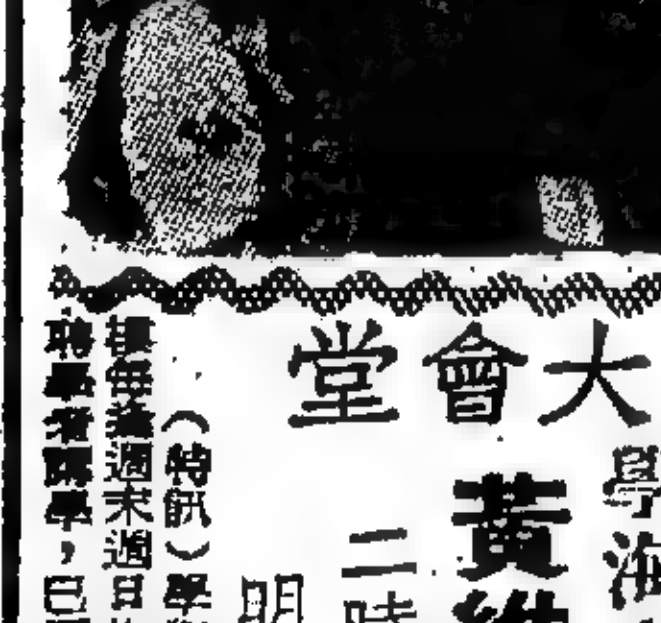 大會堂
學海
黃
二時
明
（特訊）學
樓每逢週末週日
聘學者講學，已